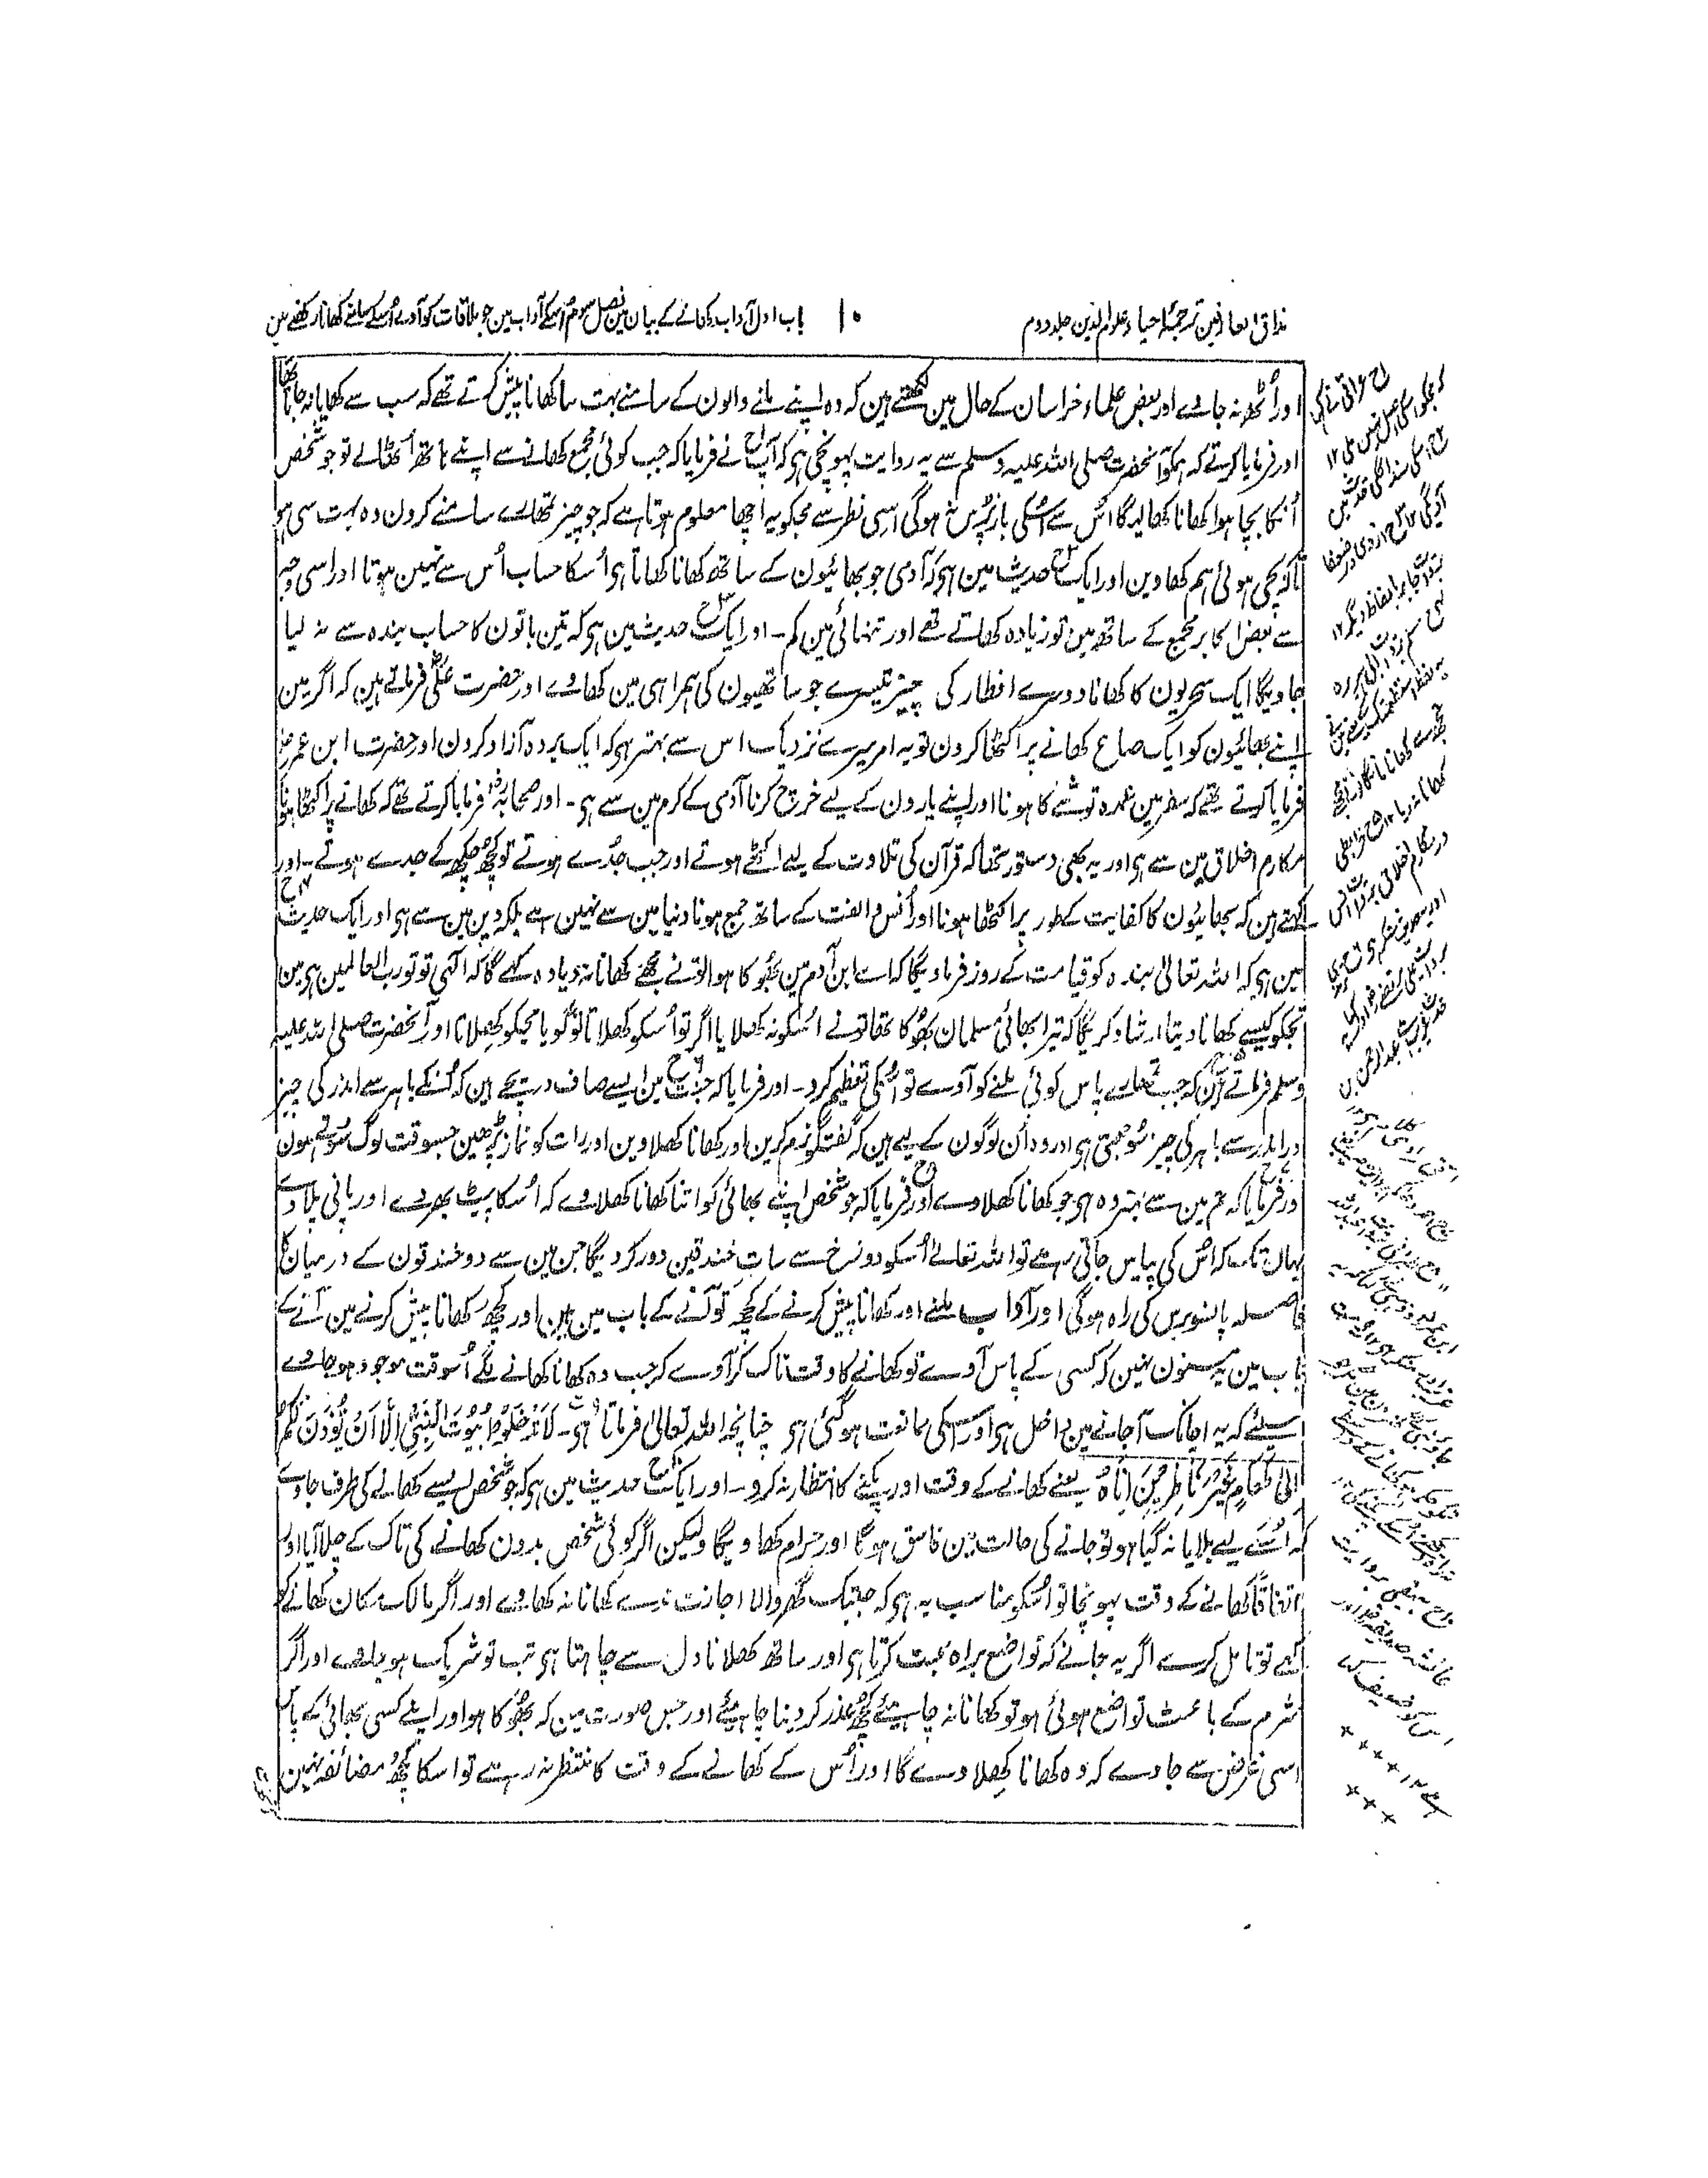 مذاق العارفین ترجمۂ احیاء علوم الدین جلد دوم
۱۰
باب اول آداب کھانے کے بیان مین فصل سوم اسکے آداب مین جو ملاقات کو آوے اُسکے سامنے کھانا رکھنے مین
اور اُٹھ نہ جاوے اور بعض علماء خراسان کے حال مین لکھتے ہین کہ وہ اپنے ملنے والون کے سامنے بہت سا کھانا پیش کرتے تھے کہ سب سے کھایا نہ جاتا تھا
اور فرمایا کرتے کہ ہمکو آنحضرت صلی اللہ علیہ وسلم سے یہ روایت پہونچی ہی کہ آپ نے فرمایا کہ جب کوئی مجمع کھانے سے اپنے ہاتھ اُٹھالے تو جو شخص
اُنکا بچا ہوا کھانا کھالیگا اُس سے اُسکی بازپرس نہ ہوگی اسی نظر سے مجکو یہ اچھا معلوم ہوتا ہے کہ جو چیز تمھارے سامنے کرون وہ بہت سی ہو
تاکہ بچی ہوئی ہم کھاوین اور ایک حدیث مین ہی کہ آدمی جو بھائیون کے ساتھ کھانا کھاتا ہی اُسکا حساب اُس سے نہین ہوتا اور اسی وجہ
سے بعض اکابر مجمع کے ساتھ مین تو زیادہ کھاتے تھے اور تنہائی مین کم ۔ اور ایک حدیث مین ہی کہ تین باتون کا حساب بندہ سے نہ لیا
جاویگا ایک سحریون کا کھانا دوسرے افطار کی چیز تیسرے جو ساتھیون کی ہمراہی مین کھاوے اور حضرت علی فرماتے ہین کہ اگر مین
اپنے بھائیون کو ایک صاع کھانے پر اکٹھا کرون تو یہ امر میرے نزدیک اس سے بہتر ہی کہ ایک بردہ آزاد کرون اور حضرت ابن عمر رضؓ
فرمایا کرتے تھے کہ سفر مین عمدہ توشے کا ہونا اور اپنے یارون کے لیے خرچ کرنا آدمی کے کرم مین سے ہی ۔ اور صحابہ فرمایا کرتے تھے کہ کھانے پر اکٹھا ہونا
مکارم اخلاق مین سے ہی اور یہ بھی دستور تھا کہ قرآن کی تلاوت کے لیے اکٹھے ہوتے اور جب جُدے ہوتے تو کچھ چکھ کے جدے ہوتے ۔ اور
کہتے ہین کہ بھائیون کا کفایت کے طور پر اکٹھا ہونا اور اُنس و الفت کے ساتھ جمع ہونا دنیا مین سے نہین ہے بلکہ دین مین سے ہی اور ایک حدیث
مین ہی کہ اللہ تعالیٰ بندہ کو قیامت کے روز فرماویگا کہ اے ابن آدم مین بھوکا ہوا تونے مجھے کھانا نہ دیا وہ کہے گا کہ الٰہی تو تو رب العالمین ہی مین
تجکو کیسے کھانا دیتا ارشاد کریگا کہ تیرا بھائی مسلمان بھوکا تھا تونے اُسکو نہ کھلایا اگر تو اُسکو کھلاتا تو گویا مجکو کھلاتا اور آنحضرت صلی اللہ علیہ
وسلم فرماتے ہین کہ جب تمھارے پاس کوئی ملنے کو آوے تو اُسکی تعظیم کرو ۔ اور فرمایا کہ جنت مین ایسے صاف دریچے ہین کہ اُنکے باہر سے اندر کی چیز
اور اندر سے باہر کی چیز سُوجھتی ہی اور وہ اُن لوگون کے لیے ہین کہ گفتگو نرم کرین اور کھانا کھلاوین اور رات کو نماز پڑھین جسوقت لوگ سوتے ہون
اور فرمایا کہ تم مین سے بہتر وہ ہی جو کھانا کھلاوے اور فرمایا کہ جو شخص اپنے بھائی کو اتنا کھانا کھلاوے کہ اُسکا پیٹ بھر دے اور پانی پلاوے
یہان تک کہ اُس کی پیاس جاتی رہے تو اللہ تعالےٰ اُسکو دوزخ سے سات خندقین دور کردیگا جن مین سے دو خندقون کے درمیان کا
فاصلہ پانسو برس کی راہ ہوگی اور آداب ملنے اور کھانا پیش کرنے کے کچھ تو آنے کے باب مین ہین اور کچھ کھانا پیش کرنے مین آنے کے
باب مین یہ مسنون نہین کہ کسی کے پاس آوے تو کھانے کا وقت تاک کر آوے کہ جب وہ کھانا کھانے لگے اُسوقت موجود ہوجاوے
اسلئے کہ یہ اچانک آجانے مین داخل ہی اور اسکی ممانعت ہوگئی ہی چنانچہ اللہ تعالیٰ فرماتا ہی ۔ لَا تَدْخُلُوْا بُیُوْتَ النَّبِیِّ اِلَّا اَنْ یُّؤْذَنَ لَکُمْ
اِلٰی طَعَامٍ غَیْرَ نَاظِرِیْنَ اِنَاہُ یعنے کھانے کے وقت اور پکنے کا انتظار نہ کرو ۔ اور ایک حدیث مین ہی کہ جو شخص ایسے کھانے کی طرف جاوے
کہ اُسکے لیے بلایا نہ گیا ہو تو جانے کی حالت مین فاسق ہوگا اور حرام کھاویگا ولیکن اگر کوئی شخص بدون کھانے کی تاک کے چلا آیا اور
اتفاقاً کھانے کے وقت پہونچا تو اُسکو مناسب یہ ہی کہ جبتک گھر والا اجازت نہ دے کھانا نہ کھاوے اور اگر مالک مکان کھانے کو
کہے تو تامل کرے اگر یہ جانے کہ تواضع براہ محبت کرتا ہی اور ساتھ کھلانا دل سے چاہتا ہی تب تو شریک ہوجاوے اور اگر
شرم کے باعث تواضع ہوئی ہو تو کھانا نہ چاہیئے کچھ عذر کردینا چاہیئے اور جس صورت مین کہ بھوکا ہو اور اپنے کسی بھائی کے پاس
اسی غرض سے جاوے کہ وہ کھانا کھلاوے گا اور اُس کے کھانے کے وقت کا منتظر نہ رہے تو اسکا کچھ مضائقہ نہین